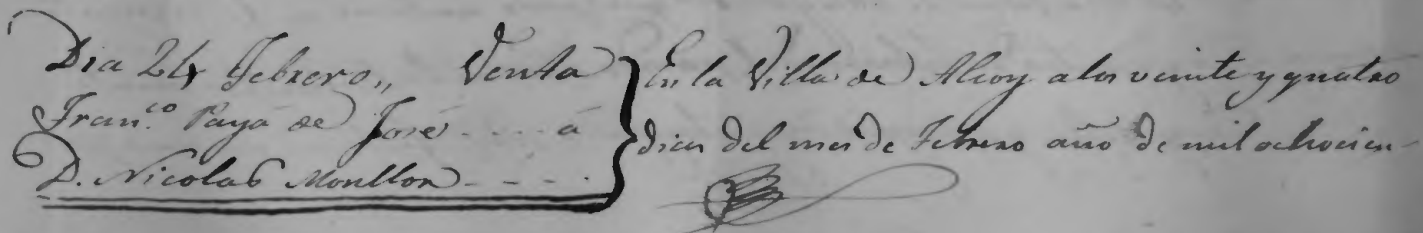 Dia 24 Febrero,, Venta
Fran.co Payá de José - - - - á
D. Nicolas Monllor - - - -
En la Villa de Alcoy a los veinte y quatro
dias del mes de Febrero año de mil ochocien-